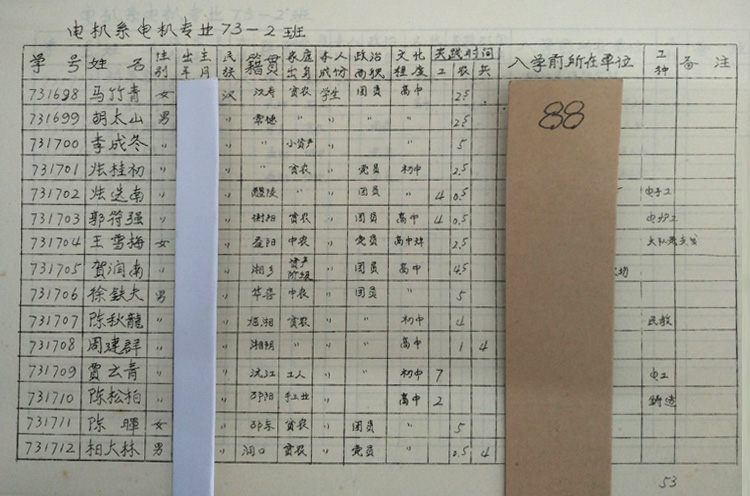 电机系电机专业73-2班
学号 姓名 性别 出生年月 民族 籍贯 家庭出身 本人成份 政治面貌 文化程度 实践时间 工 农 兵 入学前所在单位 工种 备注
731698 马竹青 女 汉 汉寿 贫农 学生 团员 高中 2.5
88
731699 胡太山 男 〃 常德 〃 〃 〃 〃 2.5
731700 李成冬 〃 〃 〃 小资产 〃 〃 5
731701 桂初 〃 〃 〃 贫农 〃 党员 初中 2.5
731702 选南 〃 〃 醴陵 〃 团员 〃 4 0.5 电子工
731703 郭符强 〃 〃 衡阳 贫农 团员 高中 4 0.5 电炉工
731704 王雪梅 女 〃 益阳 中农 党员 高中 2.5 大队
731705 贺润南 〃 湘乡 资产阶级 团员 高中 4.5
731706 徐铁夫 男 〃 华容 中农 团员 〃 5
731707 陈秋龍 〃 〃 贫农 〃 〃 初中 4 民教
731708 周建群 〃 〃 湘阴 〃 〃 高中 1 4
731709 贾云青 〃 〃 沅江 工人 〃 初中 7 电工
731710 陈松柏 〃 〃 邵阳 手工业 高中 2 铸造
731711 陈暉 女 〃 邵东 贫农 团员 5
731712 柏大林 男 〃 洞口 贫农 党员 〃 0.5 4
53